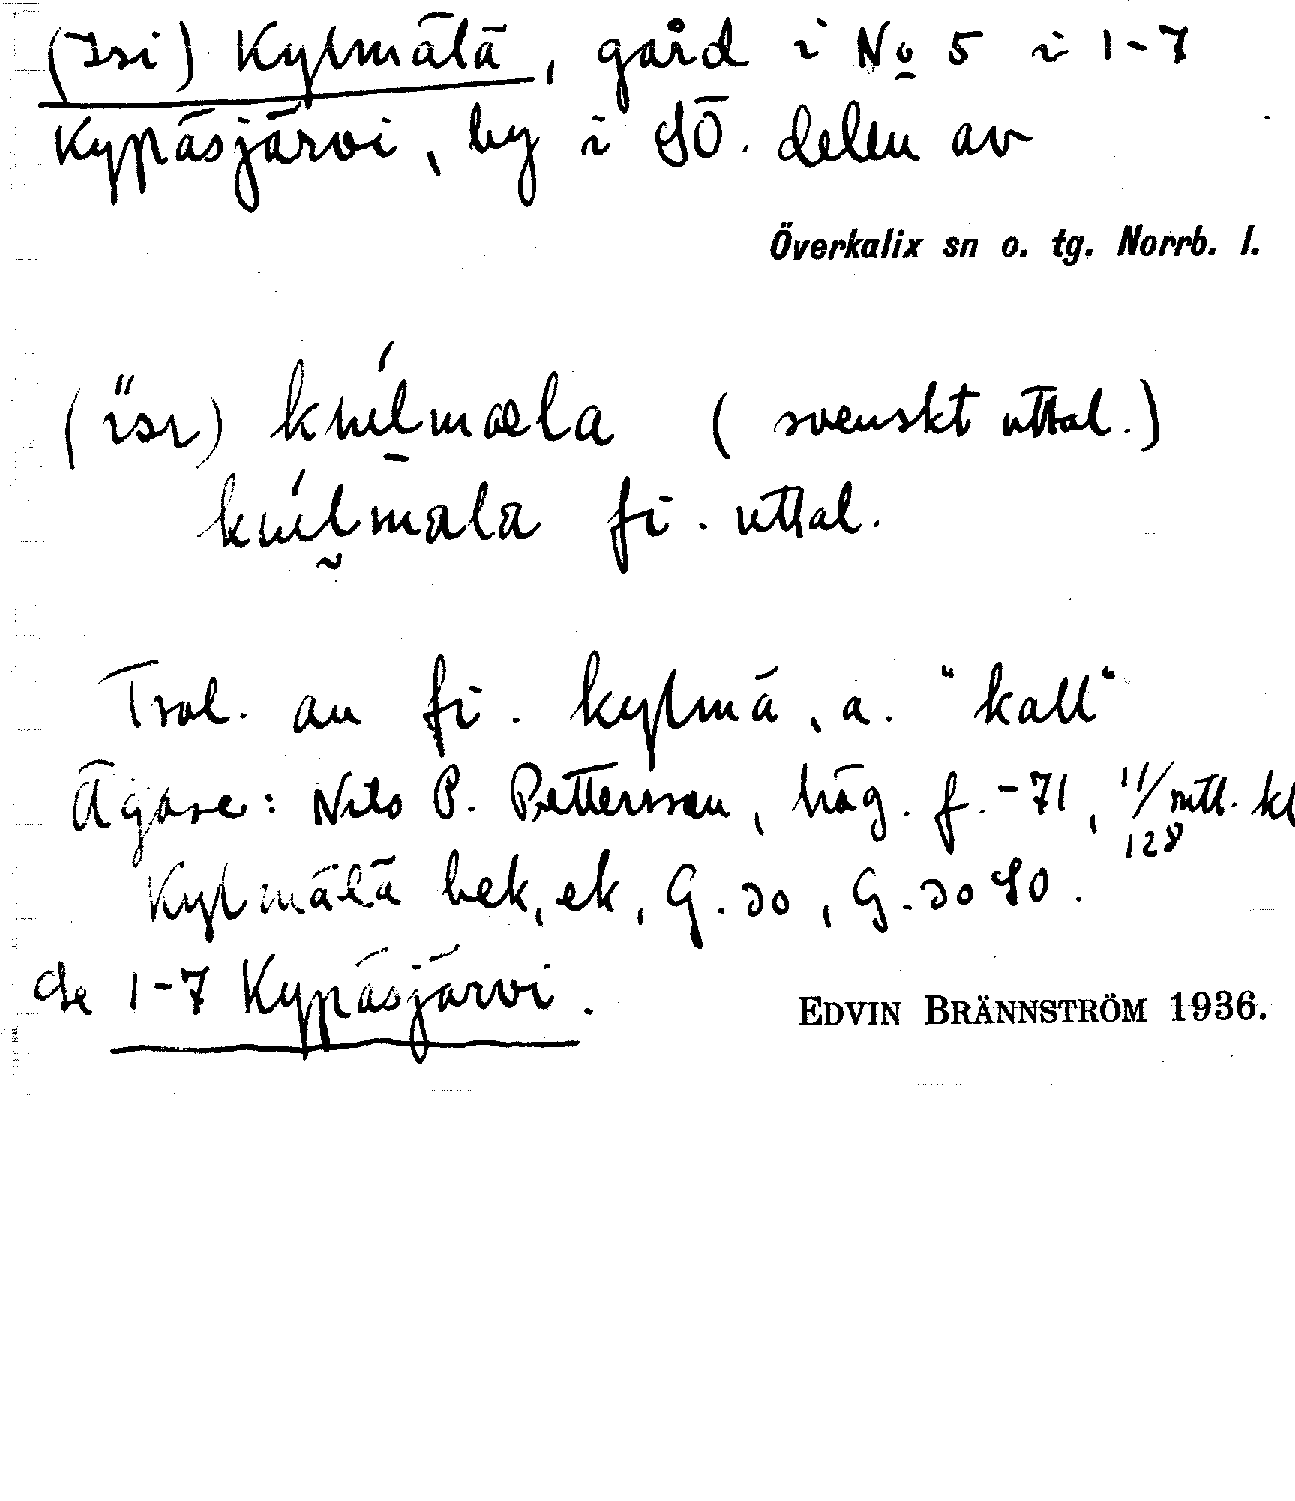 (Isi) Kylmälä, gård i No 5 i 1-7
Kypäsjärvi, by i SÖ. delen av
Överkalix sn o. tg. Norrb. l.
(svenskt uttal.)
fi. uttal.
Trol. av fi. kylmä, a. "kall"
Ägare: Nils P. Pettersson, häg. f. -71, 11/128 mtl. kl
Kylmälä bek, ek, G. do, G. do SO.
Se 1-7 Kypäsjärvi.
EDVIN BRÄNNSTRÖM 1936.